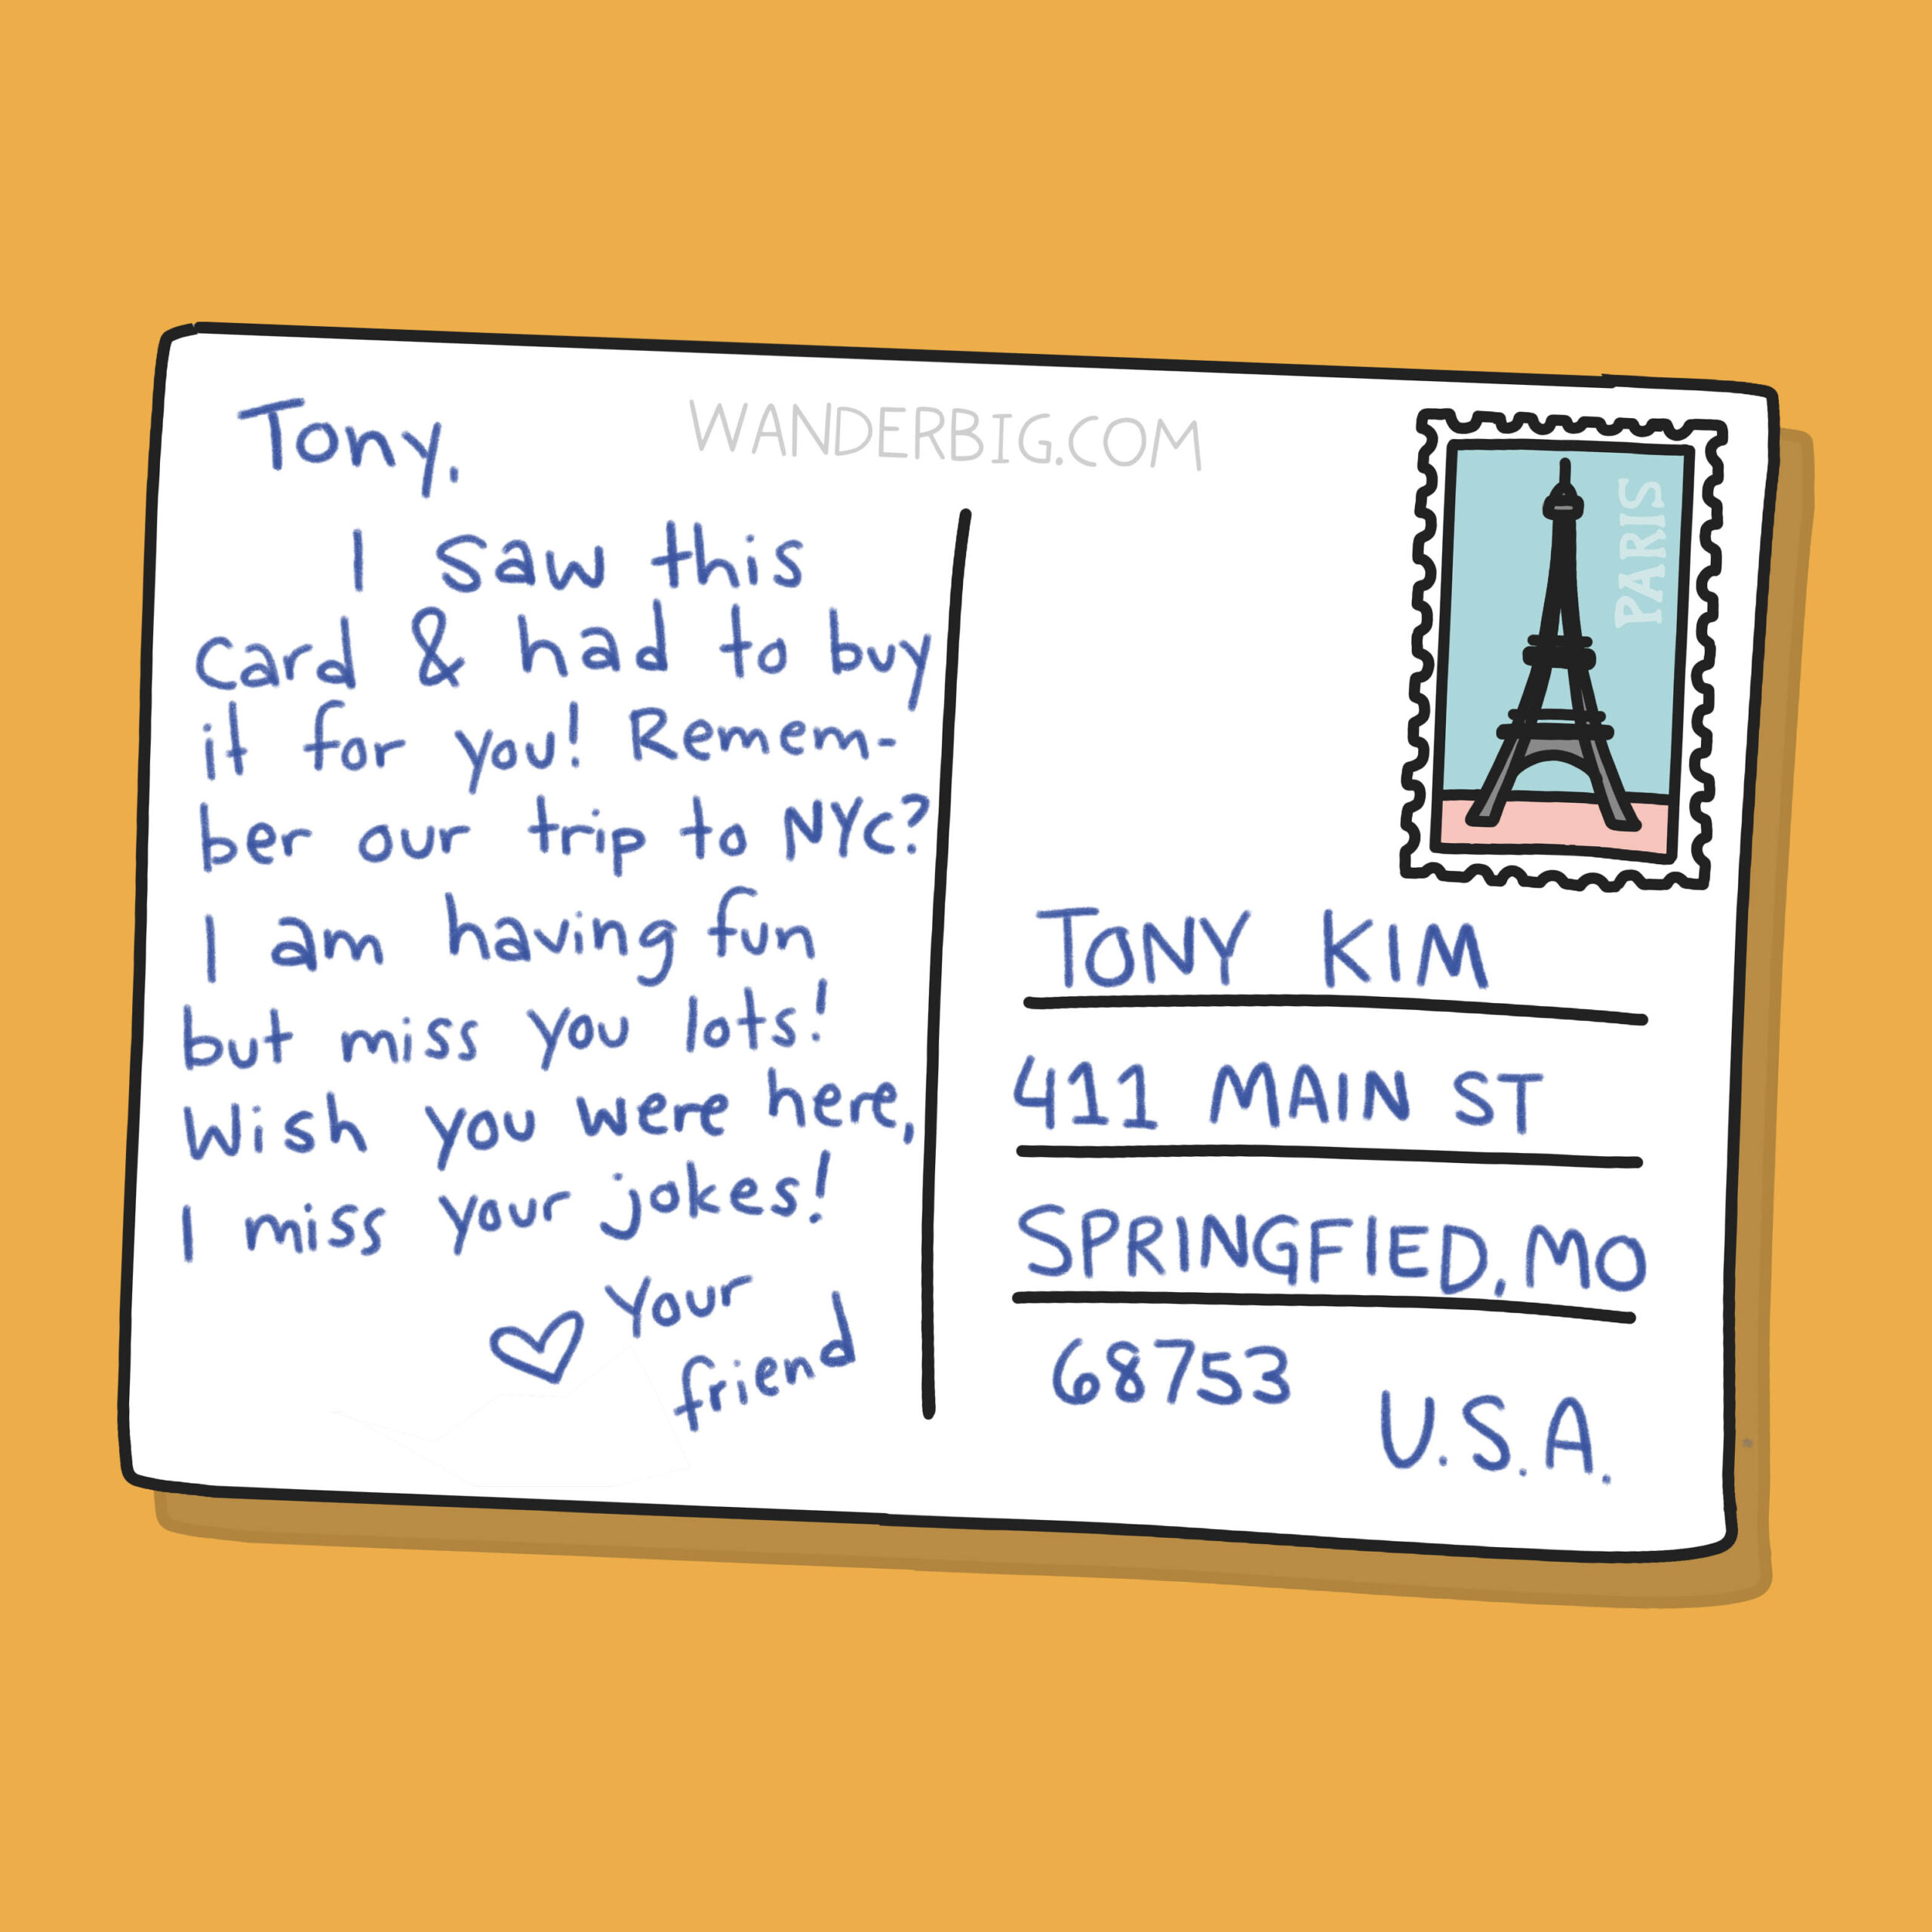 Tony,
WANDERBIG.COM
I saw this
card & had to buy
it for you! Remem-
ber our trip to NYC?
I am having fun
but miss you lots!
Wish you were here,
I miss your jokes!
♡ Your
friend
PARIS
TONY KIM
411 MAIN ST
SPRINGFIED, MO
68753
U.S.A.